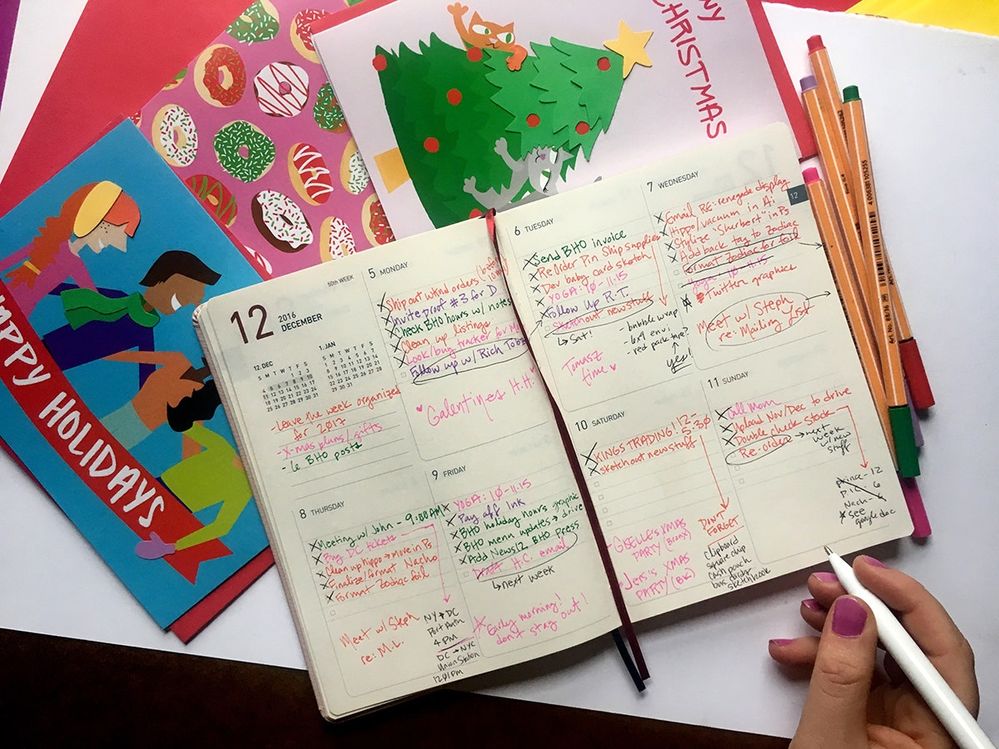 NY
CHRISTMAS
HAPPY HOLIDAYS
50th WEEK
12
2016
DECEMBER
12.DEC
1.JAN
S M T W T F S
S M T W T F S
-Leave the week organized
for 2017
-X-mas plans/gifts
- 6 BHO posts
5 MONDAY
Ship out wknd orders
Invite proof #3 for D
Check BHO hours w/ notes
Clean up listings
Look/bug tracker for
Follow up w/ Rich
Galentines H.H.
6 TUESDAY
Send BHO invoice
Re Order Pin Ship supplies
Dev baby card sketch
YOGA: 10-11:15
Follow Up R.T.
Sketch out new stuff
↳ Sat!
- bubble wrap
- envi
- red pack tape?
yes!
Tomasz
time ♥
7 WEDNESDAY
12
Email RE: renegade display
Hippo/vacuum in Ai
Stylize "Sherbert" in Ps
Add back tag to Zodiac
Format Zodiac for foil
10-11:15
Twitter graphics
Meet w/ Steph
re: Mailing list
8 THURSDAY
Meeting w/ John - 9:00AM
Buy DC tickets
Clean up hippo → Move in Ps
Finalize/format Nacho
Format Zodiac foil
Meet w/ Steph
re: M.L.
NY → DC
Port Auth
4 PM
DC → NYC
Union Station
1201PM
9 FRIDAY
YOGA: 10-11:15
Pay off Ink
BHO holiday hours graphic
BHO menu updates → drive
Add News12 BHO Press
H.C. email
↳ next week
Early morning!
don't stay out!
10 SATURDAY
KINGS TRADING: 12-5:30
Sketch out new stuff
DON'T
FORGET
clipboard
square chip
cash pouch
sketchbook
- Giselle's XMAS
PARTY (BRONX)
- Jen's XMAS
PARTY (BK)
11 SUNDAY
Call Mom
Upload Nov/Dec to drive
Double check Stock
Re-order → next
week
w/ new
stuff
prince - 12
Pizza - 6
Nach -
* see
google doc